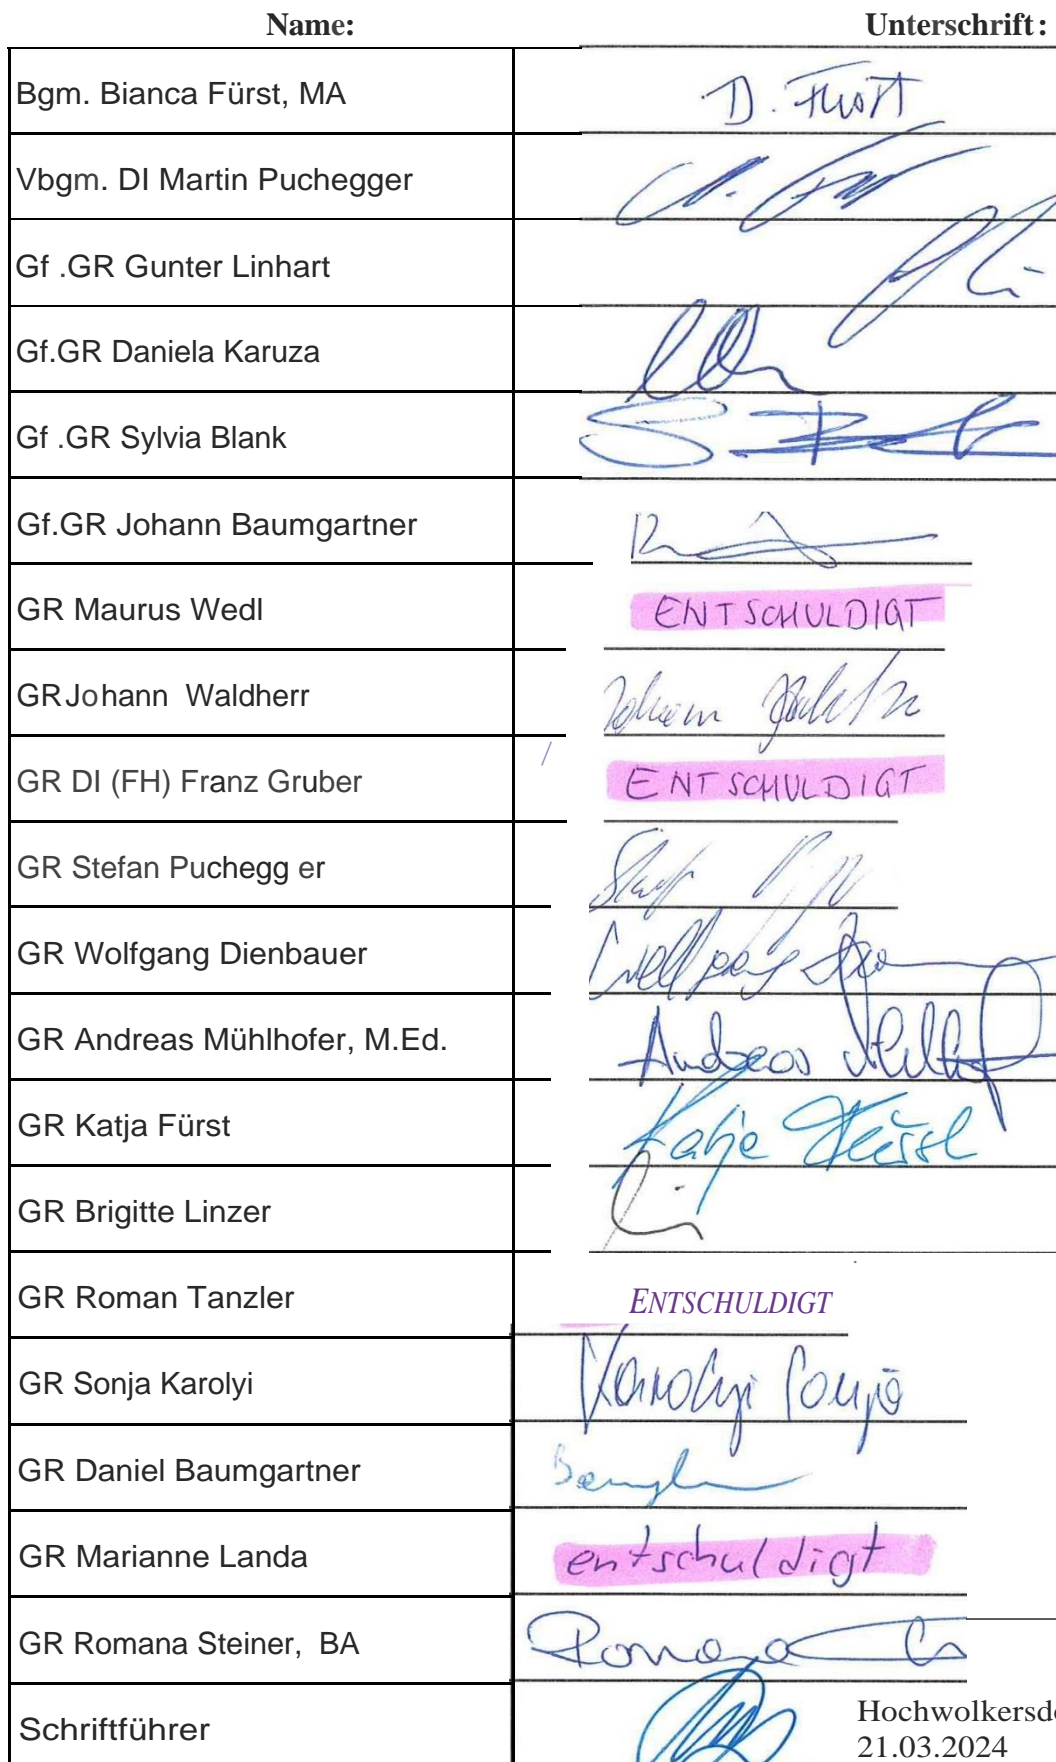 Name: Unterschrift:
Bgm. Bianca Fürst, MA
Vbgm. DI Martin Puchegger
Gf .GR Gunter Linhart
Gf.GR Daniela Karuza
Gf .GR Sylvia Blank
Gf.GR Johann Baumgartner
GR Maurus Wedl ENTSCHULDIGT
GRJohann Waldherr Johann
GR DI (FH) Franz Gruber ENTSCHULDIGT
GR Stefan Puchegg er
GR Wolfgang Dienbauer Wolfgang
GR Andreas Mühlhofer, M.Ed. Andreas
GR Katja Fürst Katja Fürst
GR Brigitte Linzer
GR Roman Tanzler ENTSCHULDIGT
GR Sonja Karolyi Karolyi Sonja
GR Daniel Baumgartner
GR Marianne Landa entschuldigt
GR Romana Steiner, BA Romana
Schriftführer
Hochwolkersdo
21.03.2024